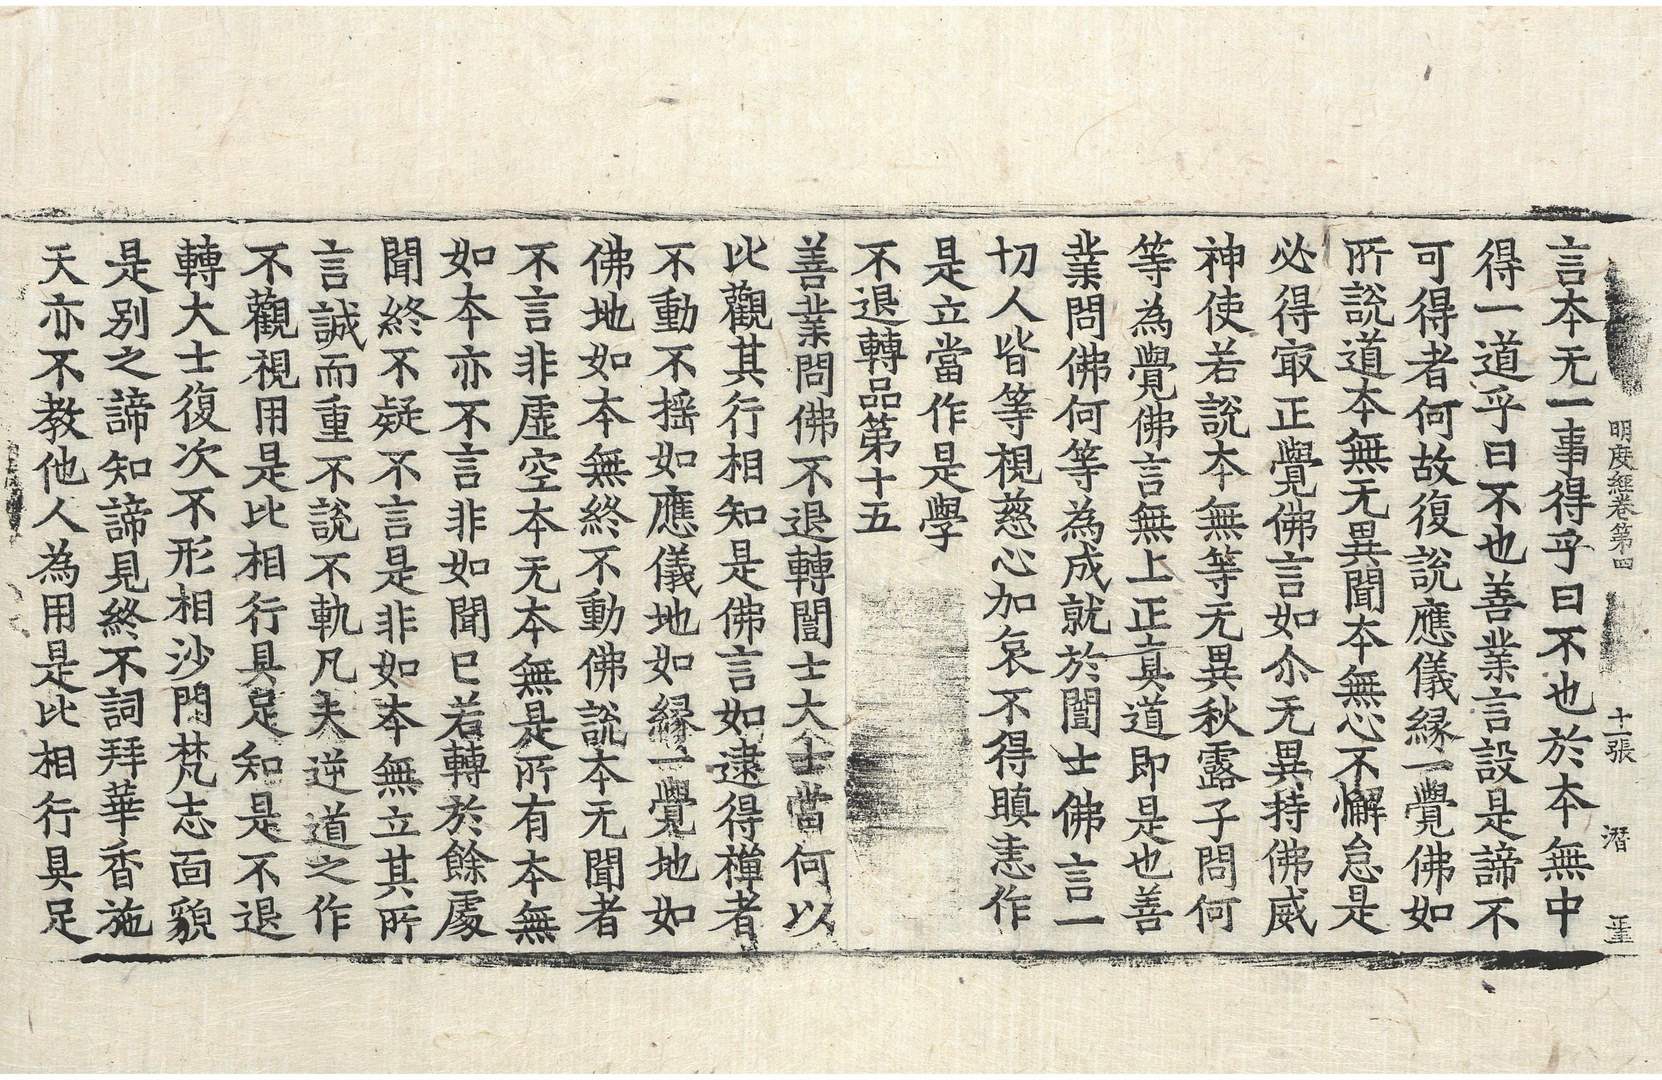 明度經卷第四 十一張 潛
言本无一事得乎曰不也於本無中
得一道乎曰不也善業言設是諦不
可得者何故復說應儀縁一覺佛如
所說道本無无異聞本無心不懈怠是
必得㝡正覺佛言如尒无異持佛威
神使若說本無等无異秋露子問何
等為覺佛言無上正真道即是也善
業問佛何等為成就於闓士佛言一
切人皆等視慈心加哀不得瞋恚作
是立當作是學
不退轉品第十五
善業問佛不退轉闓士大士當何以
比觀其行相知是佛言如逮得禪者
不動不揺如應儀地如縁一覺地如
佛地如本無終不動佛說本无聞者
不言非虛空本无本無是所有本無
如本亦不言非如聞已若轉於餘處
聞終不疑不言是非如本無立其所
言誠而重不說不軌凡夫逆道之作
不觀視用是比相行具足知是不退
轉大士復次不形相沙門梵志面貌
是別之諦知諦見終不詞拜華香施
天亦不教他人為用是比相行具足